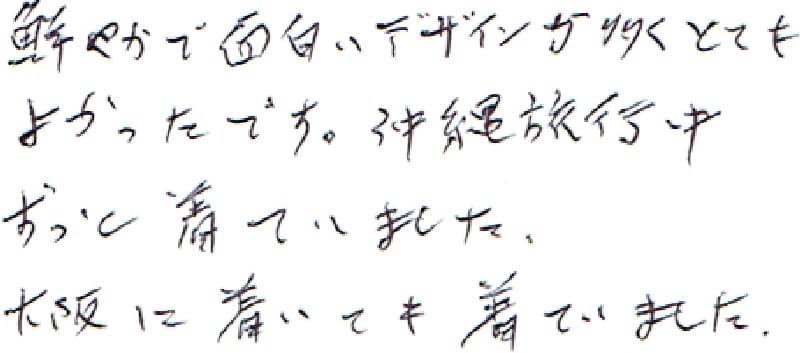 鮮やかで面白いデザインが多くとても
よかったです。沖縄旅行中
ずっと着ていました。
大阪に着いても着ていました。